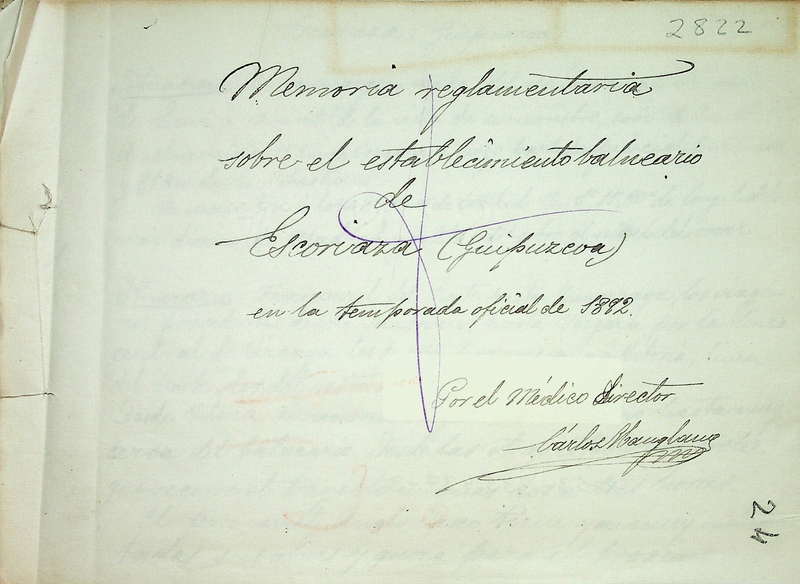 2822
Memoria reglamentaria
sobre el establecimiento balneario
de
Escoriaza (Guipuzcoa)
en la temporada oficial de 1892.
Por el Médico Director
Cárlos Manglano
24